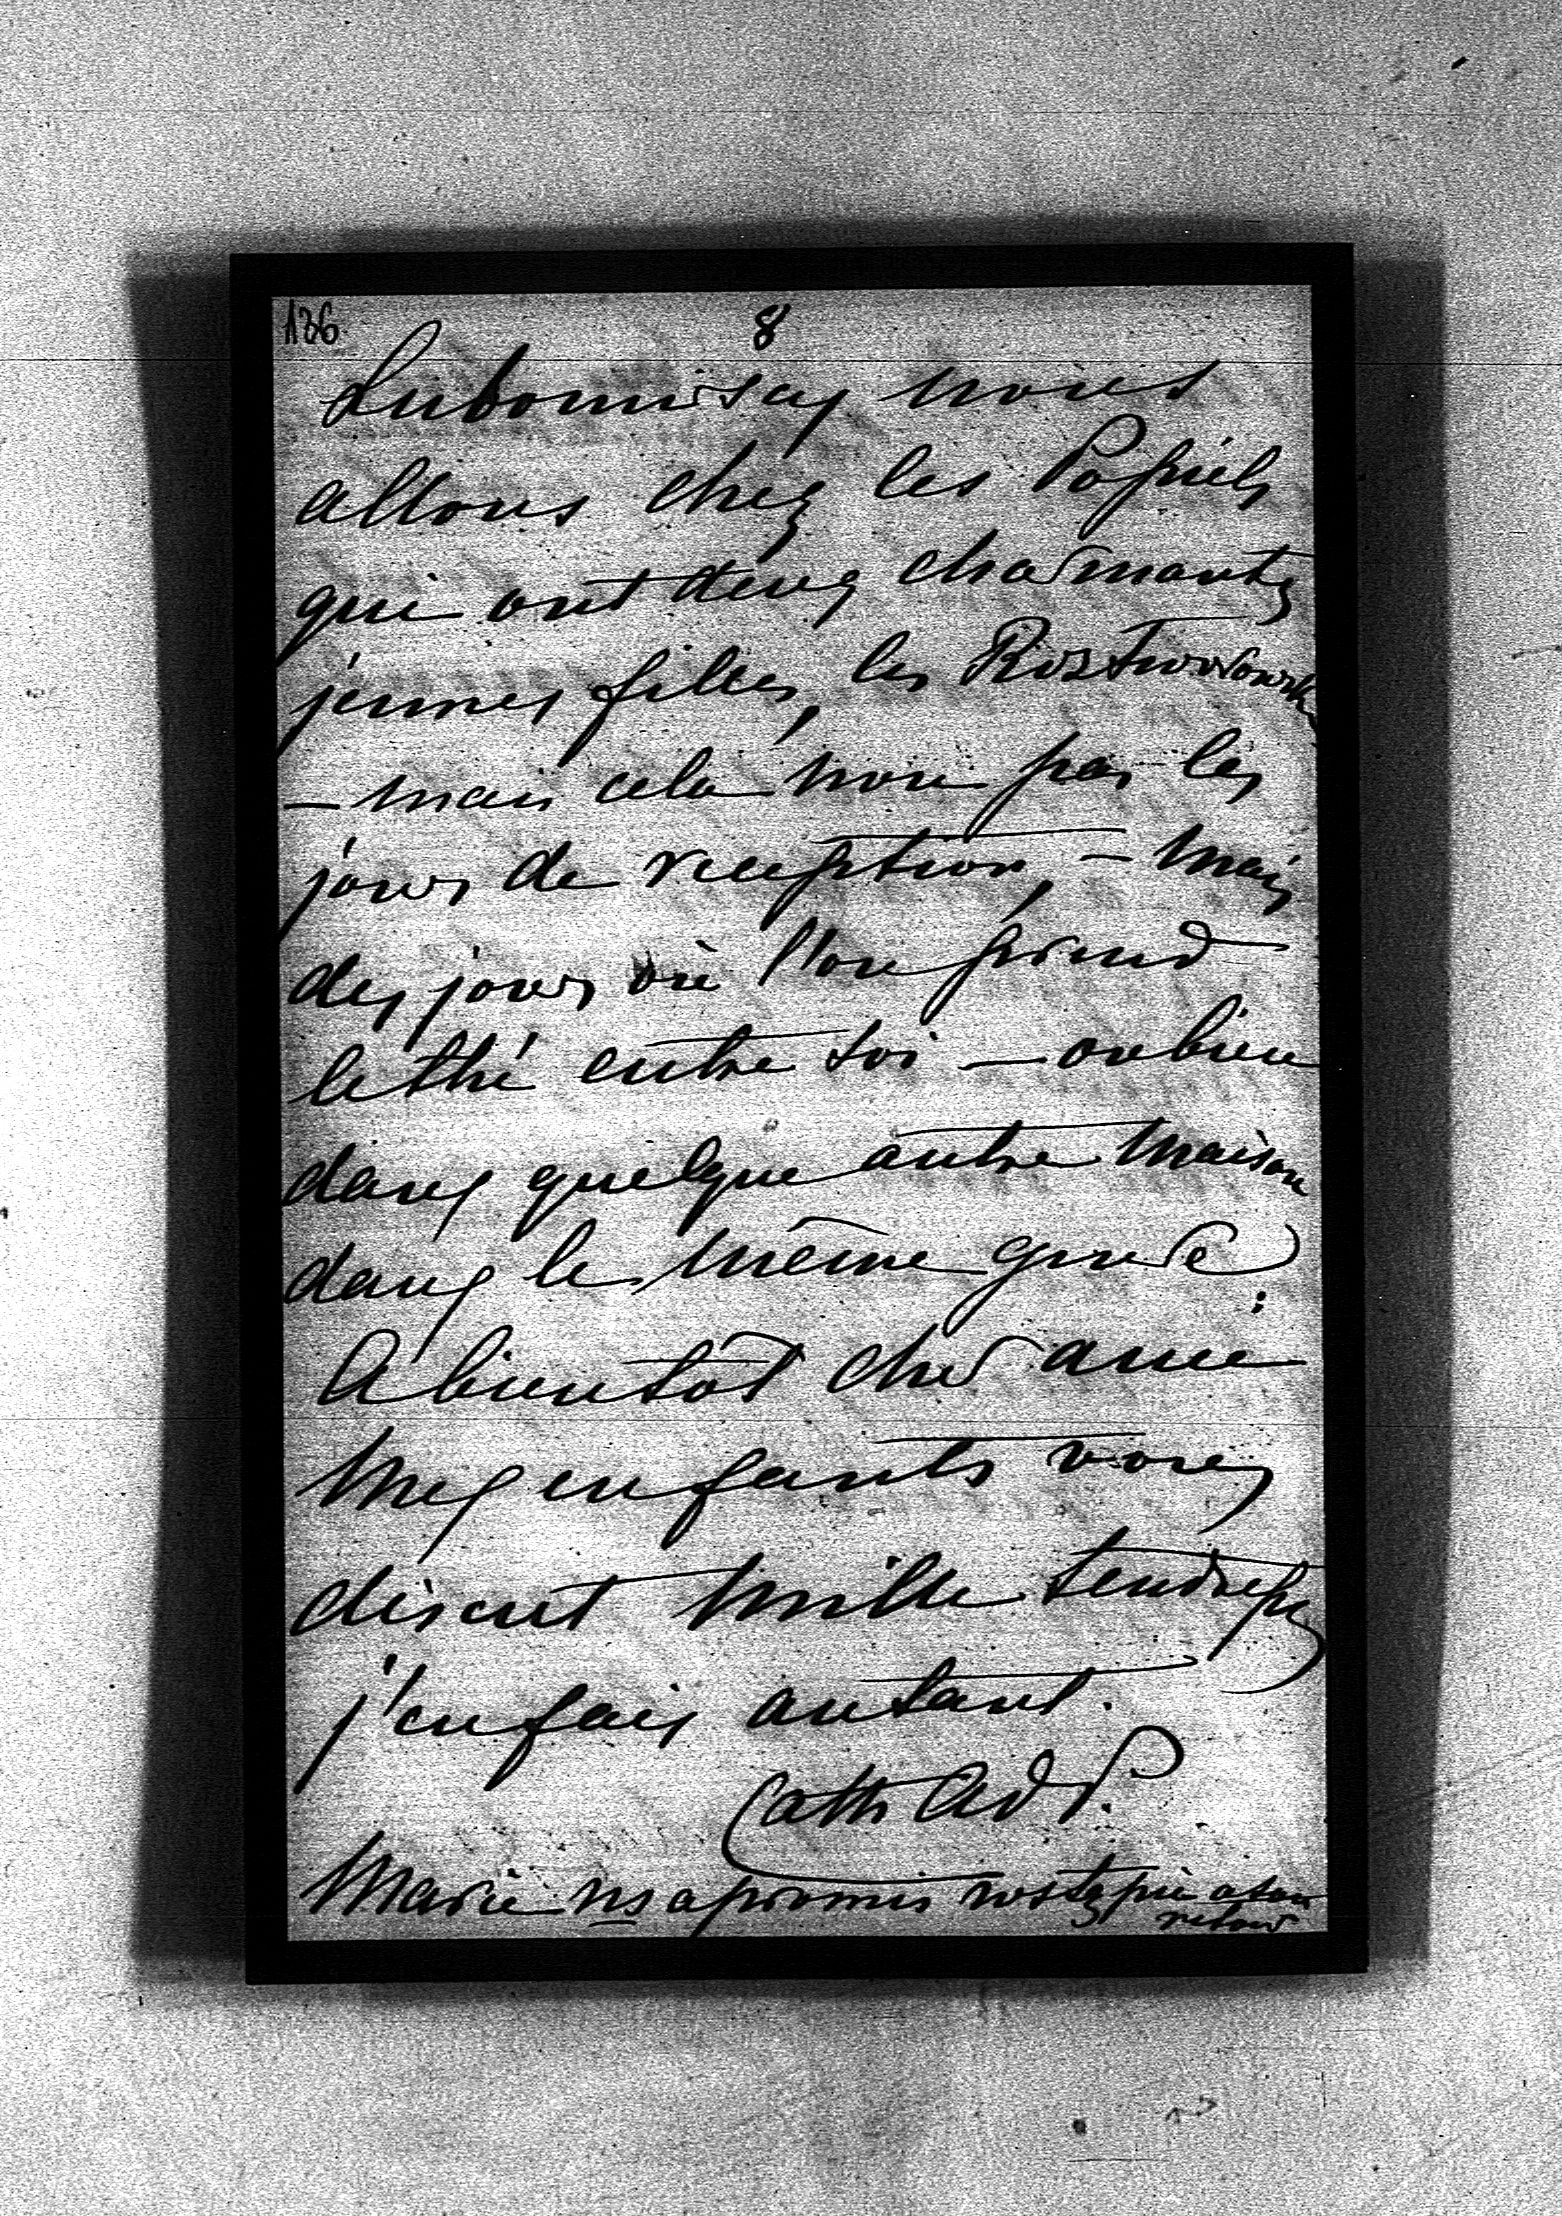 136
8
Lubomirscy nous
allons chez les Popiels
qui ont deux charmantes
jeunes filles, les Rostworowsk
– mais cela non pas les
jours de reception, – mais
des jours où l'on prend
le thé entre soi – ou bien
dans quelque autre maison
dans le même genre
A bientôt cher ami
Mes enfants vous
disent mille tendresses
j'en fais autant.
Cath Ad P.
Marie ns a promis
retour